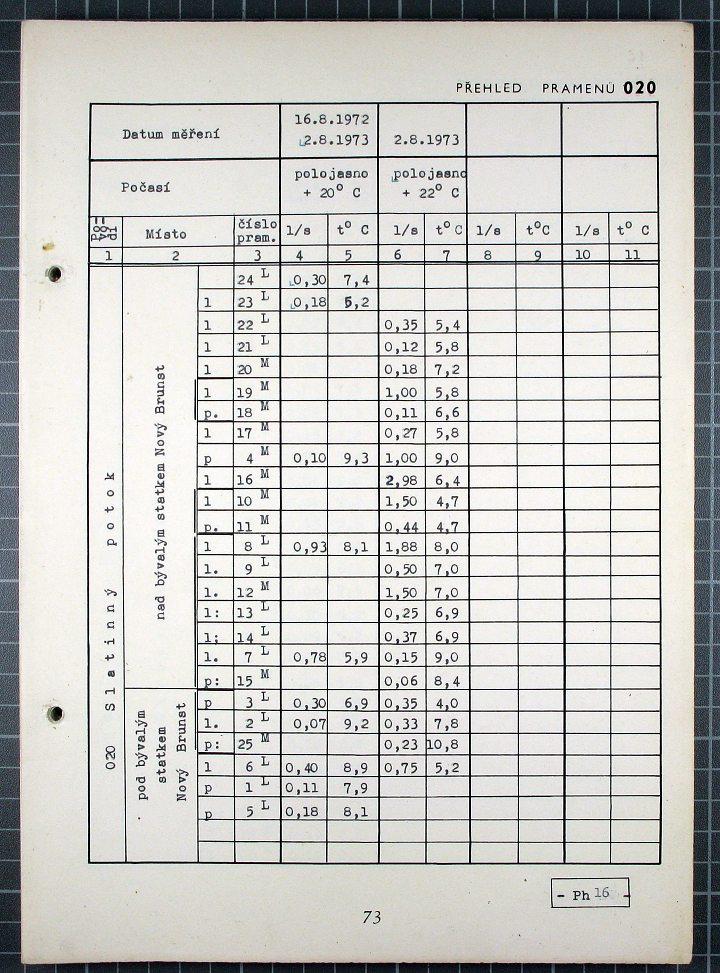 PŘEHLED PRAMENŮ 020
Datum měření 16.8.1972
2.8.1973 2.8.1973
Počasí polojasno polojasno
+ 20° C + 22° C
Po-
vo-
dí Místo číslo
pram. l/s t° C l/s t° C l/s t°C l/s t° C
1 2 3 4 5 6 7 8 9 10 11
020 Slatinný potok
nad bývalým statkem Nový Brunst
24 L 0,30 7,4
l 23 L 0,18 5,2
l 22 L 0,35 5,4
l 21 L 0,12 5,8
l 20 M 0,18 7,2
l 19 M 1,00 5,8
p. 18 M 0,11 6,6
l 17 M 0,27 5,8
p 4 M 0,10 9,3 1,00 9,0
l 16 M 2,98 6,4
l 10 M 1,50 4,7
p. 11 M 0,44 4,7
l 8 L 0,93 8,1 1,88 8,0
l. 9 L 0,50 7,0
l. 12 M 1,50 7,0
l: 13 L 0,25 6,9
l; 14 L 0,37 6,9
l. 7 L 0,78 5,9 0,15 9,0
p: 15 M 0,06 8,4
pod bývalým
statkem
Nový Brunst
p 3 L 0,30 6,9 0,35 4,0
l. 2 L 0,07 9,2 0,33 7,8
p: 25 M 0,23 10,8
l 6 L 0,40 8,9 0,75 5,2
p 1 L 0,11 7,9
p 5 L 0,18 8,1
- Ph 16 -
73